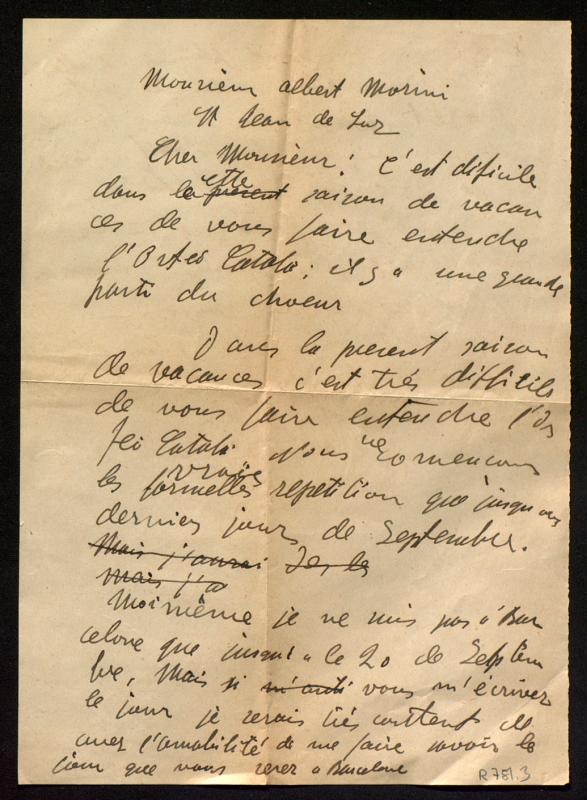 Monsieur Albert Morini
St Jean de Luz
Cher Monsieur: C'est dificile
dans le present cette saison de vacan
ces de vous faire entendre
l'Orfeó Català: il y a une grande
parti du choeur
Dans la present saison
de vacances c'est très difficile
de vous faire entendre l'Or
feó Català. Nous ne comencons
les formelles vraies repetition que jusqu aux
derniers jours de Septembre.
Mais j'aurai des les
mais j'a
Moi même je ne suis pas à Bar
celone que jusqu'a le 20 de Septem
bre, Mais si vous m'écrivez
le jour je serais très content de
avez l'amabilité de me faire savoir le
jour que vous serez a Barcelone
R 751.3